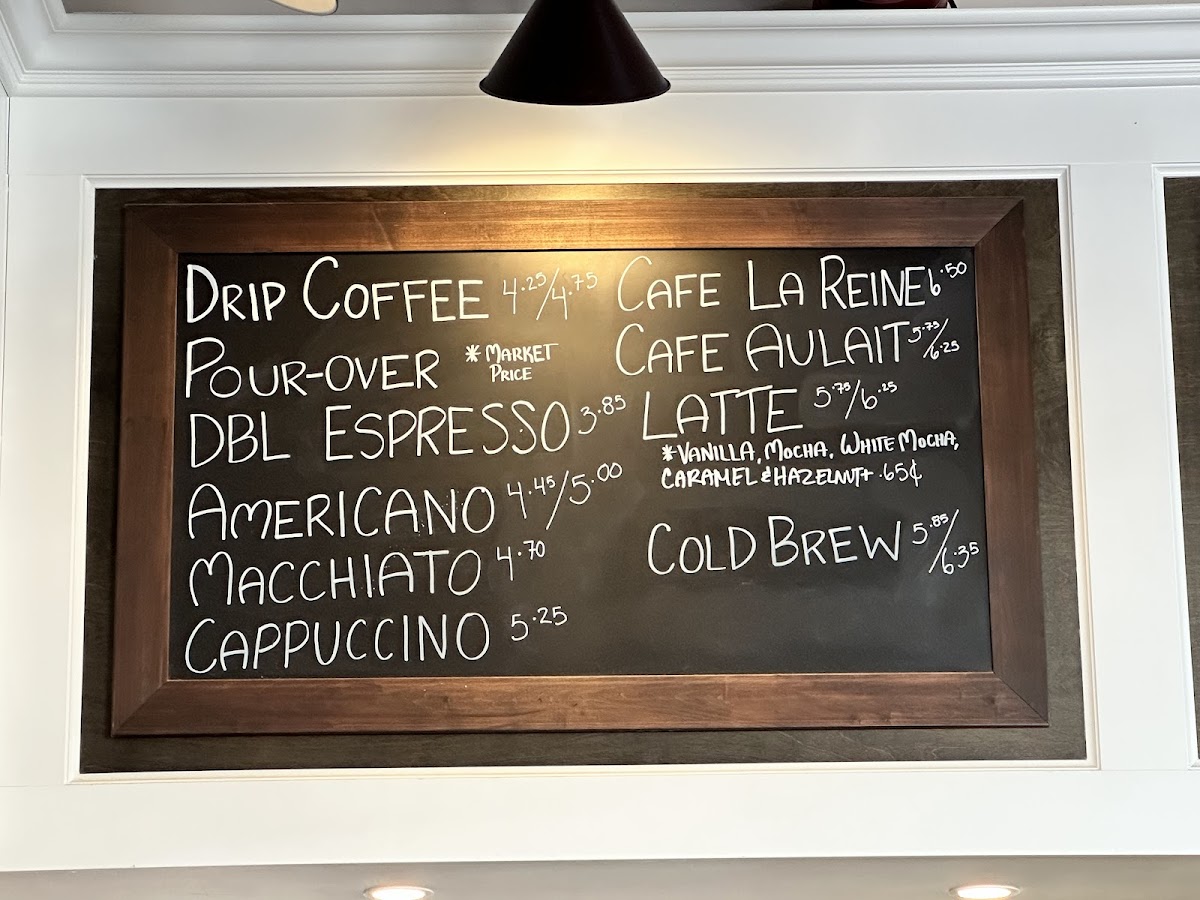 DRIP COFFEE 4.25/4.75
POUR-OVER *MARKET
PRICE
DBL ESPRESSO 3.85
AMERICANO 4.45/5.00
MACCHIATO 4.70
CAPPUCCINO 5.25
CAFE LA REINE 6.50
CAFE AULAIT 5.75/
6.25
LATTE 5.75/6.25
*VANILLA, MOCHA, WHITE MOCHA,
CARAMEL & HAZELNUT + .65¢
COLD BREW 5.85/
6.35